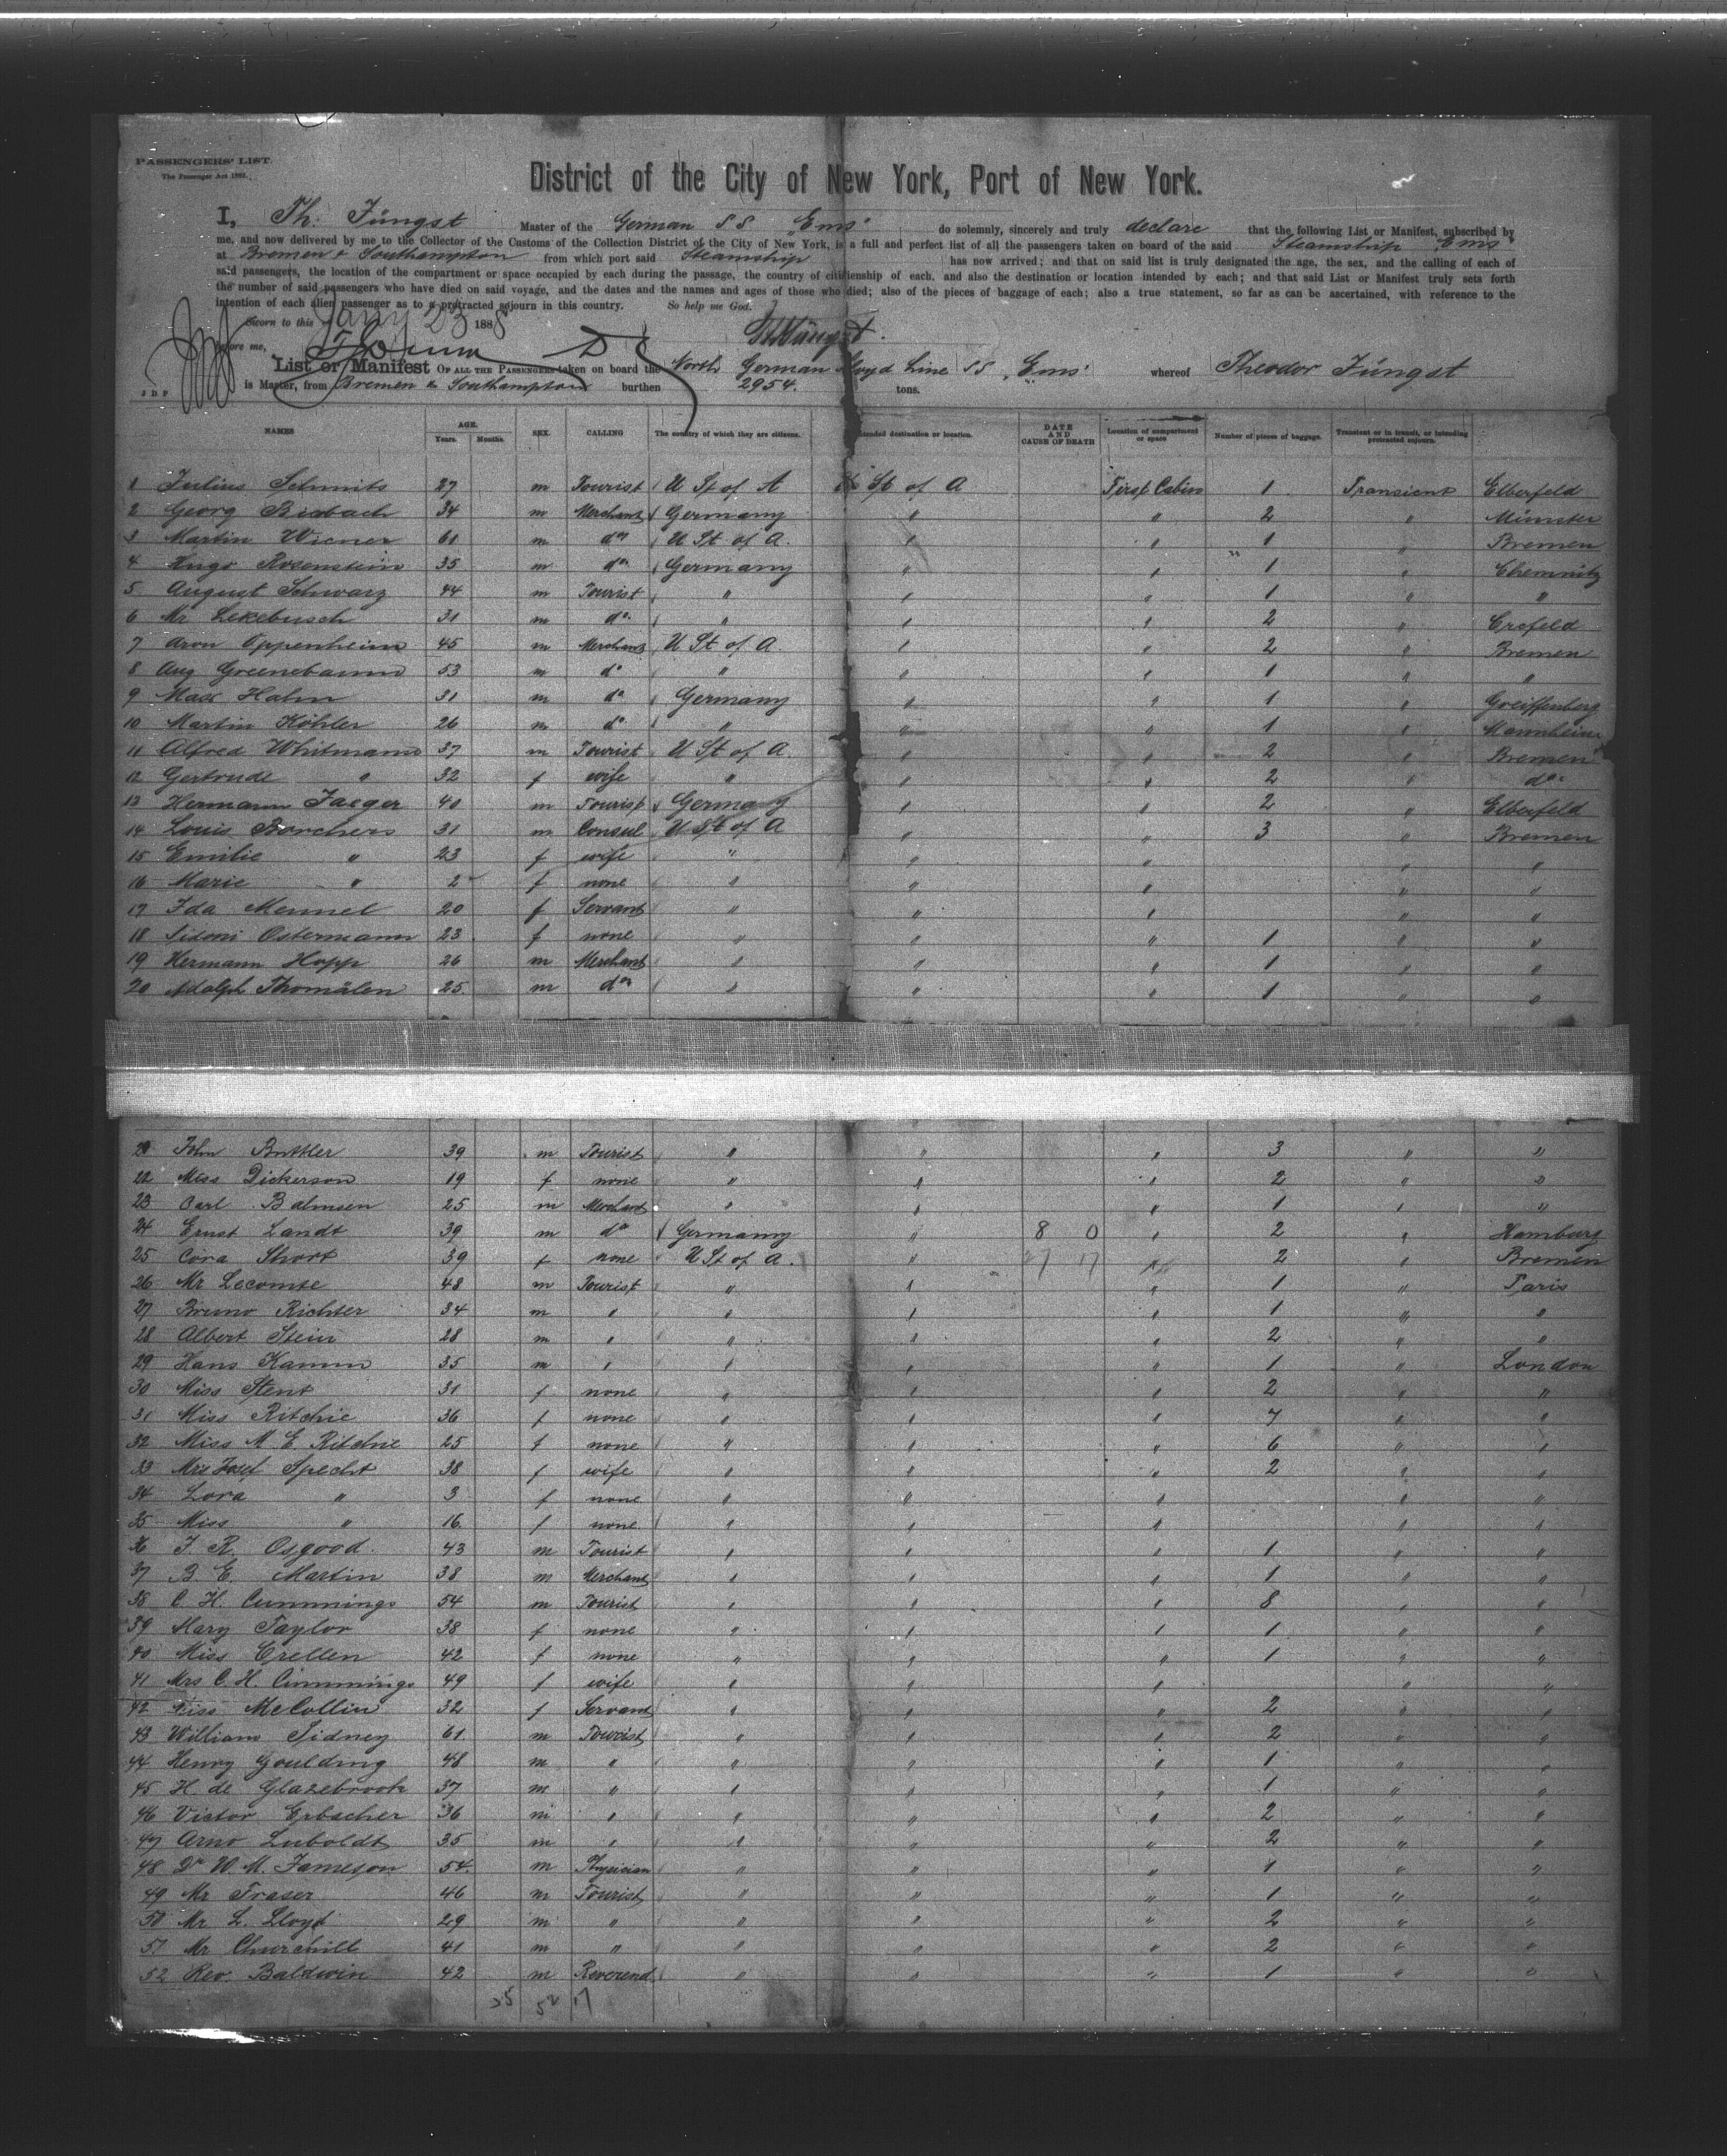 PASSENGERS' LIST.
The Passenger Act 1882.
District of the City of New York, Port of New York.
I, Th. Jüngst Master of the German SS „Ems" do solemnly, sincerely and truly declare that the following List or Manifest, subscribed by
me, and now delivered by me to the Collector of the Customs of the Collection District of the City of New York, is a full and perfect list of all the passengers taken on board of the said Steamship Ems
at Bremen & Southampton from which port said Steamship has now arrived; and that on said list is truly designated the age, the sex, and the calling of each of
said passengers, the location of the compartment or space occupied by each during the passage, the country of citizenship of each, and also the destination or location intended by each; and that said List or Manifest truly sets forth
the number of said passengers who have died on said voyage, and the dates and the names and ages of those who died; also of the pieces of baggage of each; also a true statement, so far as can be ascertained, with reference to the
intention of each alien passenger as to a protracted sojourn in this country. So help me God.
Sworn to this Jany 23 1888
before me, Th Jüngst.
List or Manifest OF ALL THE PASSENGERS taken on board the North German Lloyd Line SS „Ems" whereof Theodor Jüngst
is Master, from Bremen & Southampton burthen 2954. tons.
J D P
NAMES AGE. Years. Months. SEX. CALLING The country of which they are citizens. Intended destination or location. DATE AND CAUSE OF DEATH Location of compartment or space Number of pieces of baggage. Transient or in transit, or intending protracted sojourn.
1 Julius Schmits 27 m Tourist U St of A U St of A First Cabin 1 Transient Elberfeld
2 Georg Bisbach 34 m Merchant Germany " " 2 " Münster
3 Martin Wiener 61 m do U St of A. " " 1 " Bremen
4 Hugo Rosenstein 35 m do Germany " " 1 " Chemnitz
5 August Schwarz 44 m Tourist " " " 1 " "
6 Mr Lekebusch 31 m do " " " 2 " Crefeld
7 Aron Oppenheim 45 m Merchant U St of A. " " 2 " Bremen
8 Aug Greenebaum 53 m do " " " 1 " "
9 Max Hahn 31 m do Germany " " 1 " Greiffenberg
10 Martin Köhler 26 m do " " " 1 " Mannheim
11 Alfred Whitmann 37 m Tourist U St of A. " " 2 " Bremen
12 Gertrude " 32 f wife " " " 2 " do
13 Hermann Jaeger 40 m Tourist Germany " " 2 " Elberfeld
14 Louis Borchers 31 m Consul U St of A " " 3 " Bremen
15 Emilie " 23 f wife " " " " "
16 Marie " 2 f none " " " " "
17 Ida Mennel 20 f Servant " " " " "
18 Sidoni Ostermann 23 f none " " " 1 " "
19 Hermann Hopp 26 m Merchant " " " 1 " "
20 Adolph Thomälen 25. m do " " " 1 " "
21 John Buttler 39 m Tourist " " " 3 " "
22 Miss Dickerson 19 f none " " " 2 " "
23 Carl Balmsen 25 m Merchant " " " 1 " "
24 Ernst Landt 39 m do Germany " 8 0 " 2 " Hamburg
25 Cora Short 39 f none U St of A. " 27 17 " 2 " Bremen
26 Mr Lecomte 48 m Tourist " " " 1 " Paris
27 Bruno Richter 34 m " " " " 1 " "
28 Albert Stein 28 m " " " " 2 " "
29 Hans Kamm 35 m " " " " 1 " London
30 Miss Stent 31 f none " " " 2 " "
31 Miss Ritchie 36 f none " " " 7 " "
32 Miss M. E. Ritchie 25 f none " " " 6 " "
33 Mrs Josef Specht 38 f wife " " " 2 " "
34 Lora " 3 f none " " " " "
35 Miss " 16. f none " " " " "
36 F. R. Osgood. 43 m Tourist " " " 1 " "
37 B E. Martin 38 m Merchant " " " 1 " "
38 C. H. Cummings 54 m Tourist " " " 8 " "
39 Mary Taylor 38 f none " " " 1 " "
40 Miss Crellen 42 f none " " " 1 " "
41 Mrs C. H. Cummings 49 f wife " " " " "
42 Miss McCollin 32 f Servant " " " 2 " "
43 William Sidney 61. m Tourist " " " 2 " "
44 Henry Goulding 48 m " " " " 1 " "
45 H. de Glazebrook 37 m " " " " 1 " "
46 Victor Erbscher 36 m " " " " 2 " "
47 Arno Luboldt 35 m " " " " 2 " "
48 Dr W. M. Jameson 54. m Physician " " " 1 " "
49 Mr Fraser 46 m Tourist " " " 1 " "
50 Mr L. Lloyd 29 m " " " " 2 " "
51 Mr Churchill 41 m " " " " 2 " "
52 Rev. Baldwin 42 m Reverend " " " 1 " "
35 52 17